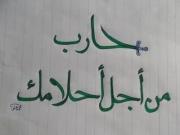 حارب
من أجل أحلامك